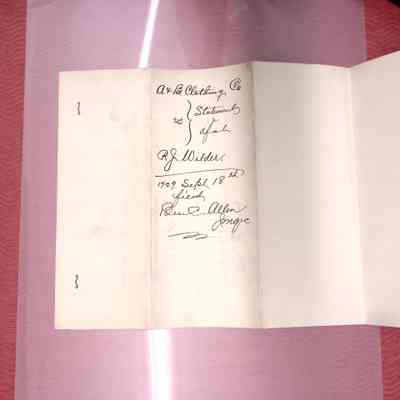 A & B Clothing Co
vs } Statement
of a/c
R. J. Wilder
1909 Sept 18th
filed
Ben C. Allen